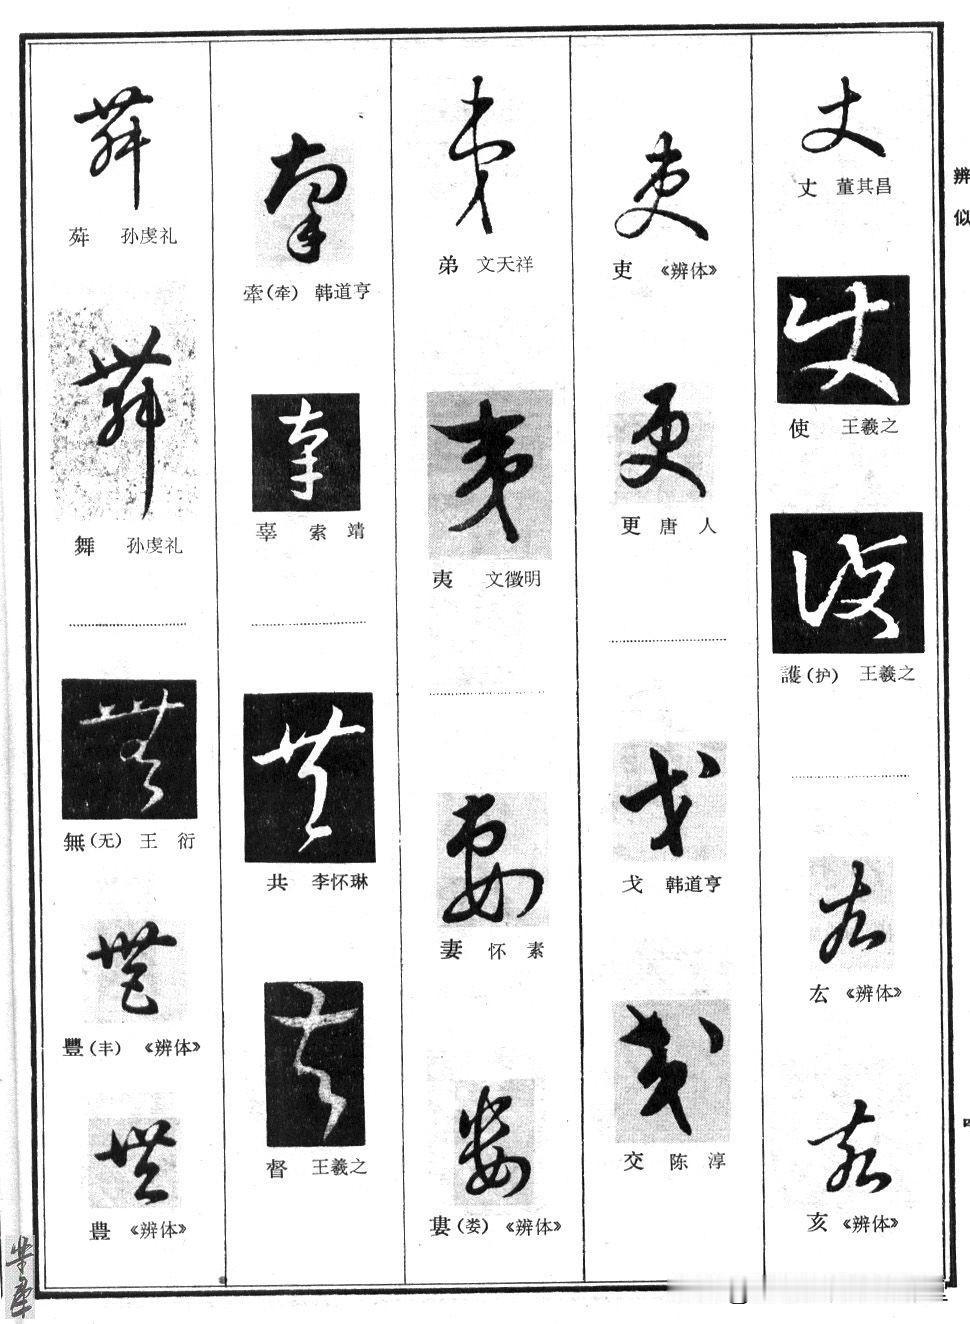 辨似
丈 董其昌
使 王羲之
護(护) 王羲之
厷 《辨体》
亥 《辨体》
吏 《辨体》
更 唐人
戈 韩道亨
交 陈淳
弟 文天祥
夷 文徵明
妻 怀素
婁(娄) 《辨体》
牽(牵) 韩道亨
辜 索靖
共 李怀琳
督 王羲之
孙虔礼
舞 孙虔礼
無(无) 王衍
豐(丰) 《辨体》
豊 《辨体》